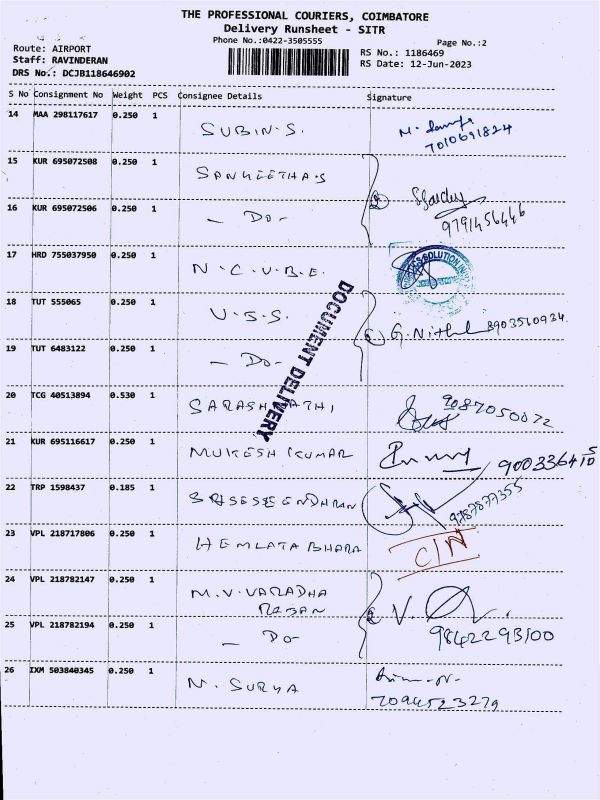 THE PROFESSIONAL COURIERS, COIMBATORE
Delivery Runsheet - SITR
Phone No.:0422-3505555 Page No.:2
Route: AIRPORT
Staff: RAVINDERAN
DRS No.: DCJB118646902
RS No.: 1186469
RS Date: 12-Jun-2023
S No Consignment No Weight PCS Consignee Details Signature
14 MAA 298117617 0.250 1 SUBIN.S.
7010691824
15 KUR 695072508 0.250 1 SANGEETHA.S
16 KUR 695072506 0.250 1 - DO -
9791456446
17 HRD 755037950 0.250 1 N.C.U.B.E. SOLUTION
18 TUT 555065 0.250 1 U.S.S.
G. Nithul 8903560934
19 TUT 6483122 0.250 1 - DO -
DOCUMENT DELIVERY
20 TCG 40513894 0.530 1 9087050072
21 KUR 695116617 0.250 1 MUKESH KUMAR
22 TRP 1598437 0.185 1 9787877355
23 VPL 218717806 0.250 1 HEMLATA BHARA C/N
24 VPL 218782147 0.250 1 M.V. VARADHA
RAJAN
25 VPL 218782194 0.250 1 - DO - 9842293100
26 IXM 503840345 0.250 1 N. SURYA
7094523279